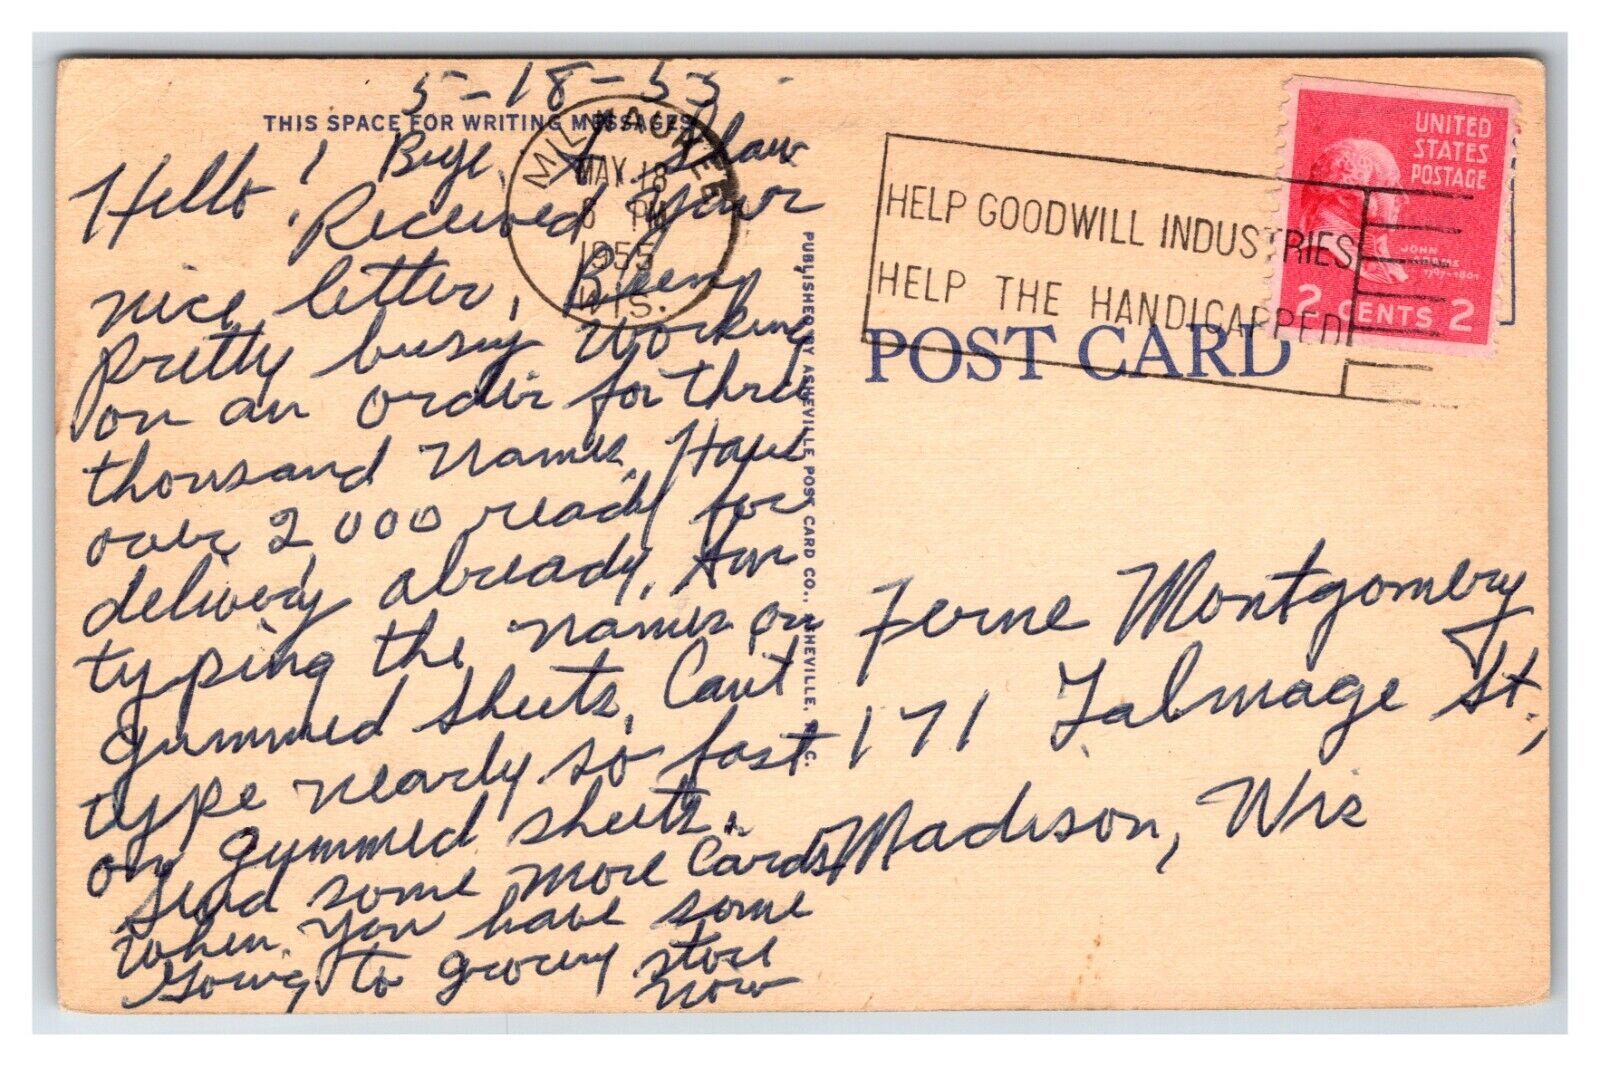 5-18-55
THIS SPACE FOR WRITING MESSAGES
Hello! Bye. A. Shaw
Received your
nice letter, Been
pretty busy working
on an order for three
thousand names. Have
over 2000 ready for
delivery already. Am
typing the names on
gummed sheets. Can't
type nearly so fast
on gummed sheets.
Send some more Cards
when you have some
Going to grocery store
now
MILWAUKEE
MAY 18
PM
1955
WIS.
PUBLISHED BY ASHEVILLE POST CARD CO., ASHEVILLE, N.C.
HELP GOODWILL INDUSTRIES
HELP THE HANDICAPPED
UNITED
STATES
POSTAGE
JOHN
ADAMS
1797-1801
2 CENTS 2
POST CARD
Ferne Montgomery
171 Talmage St.,
Madison, Wis